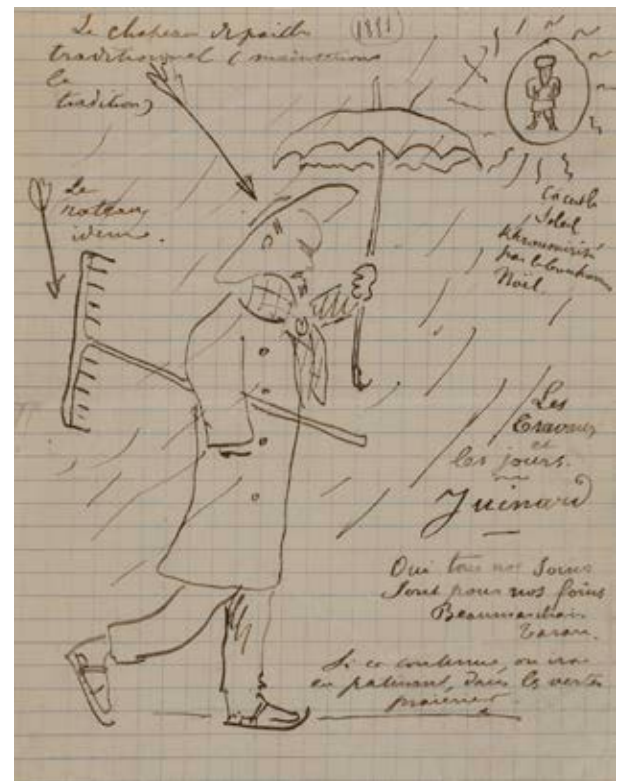 Le chapeau de paille
traditionnel (maintenons
la
tradition)
(1881)
Le
rateau
idem.
Soleil
par le bonhomme
Noël.
Les
travaux
et
les jours.
Juinard
Oui tous nos soins
sont pour nos foins
Beaumarchais
Tarare.
Si ça continue, on ira
en patinant, dans les vertes
prairies